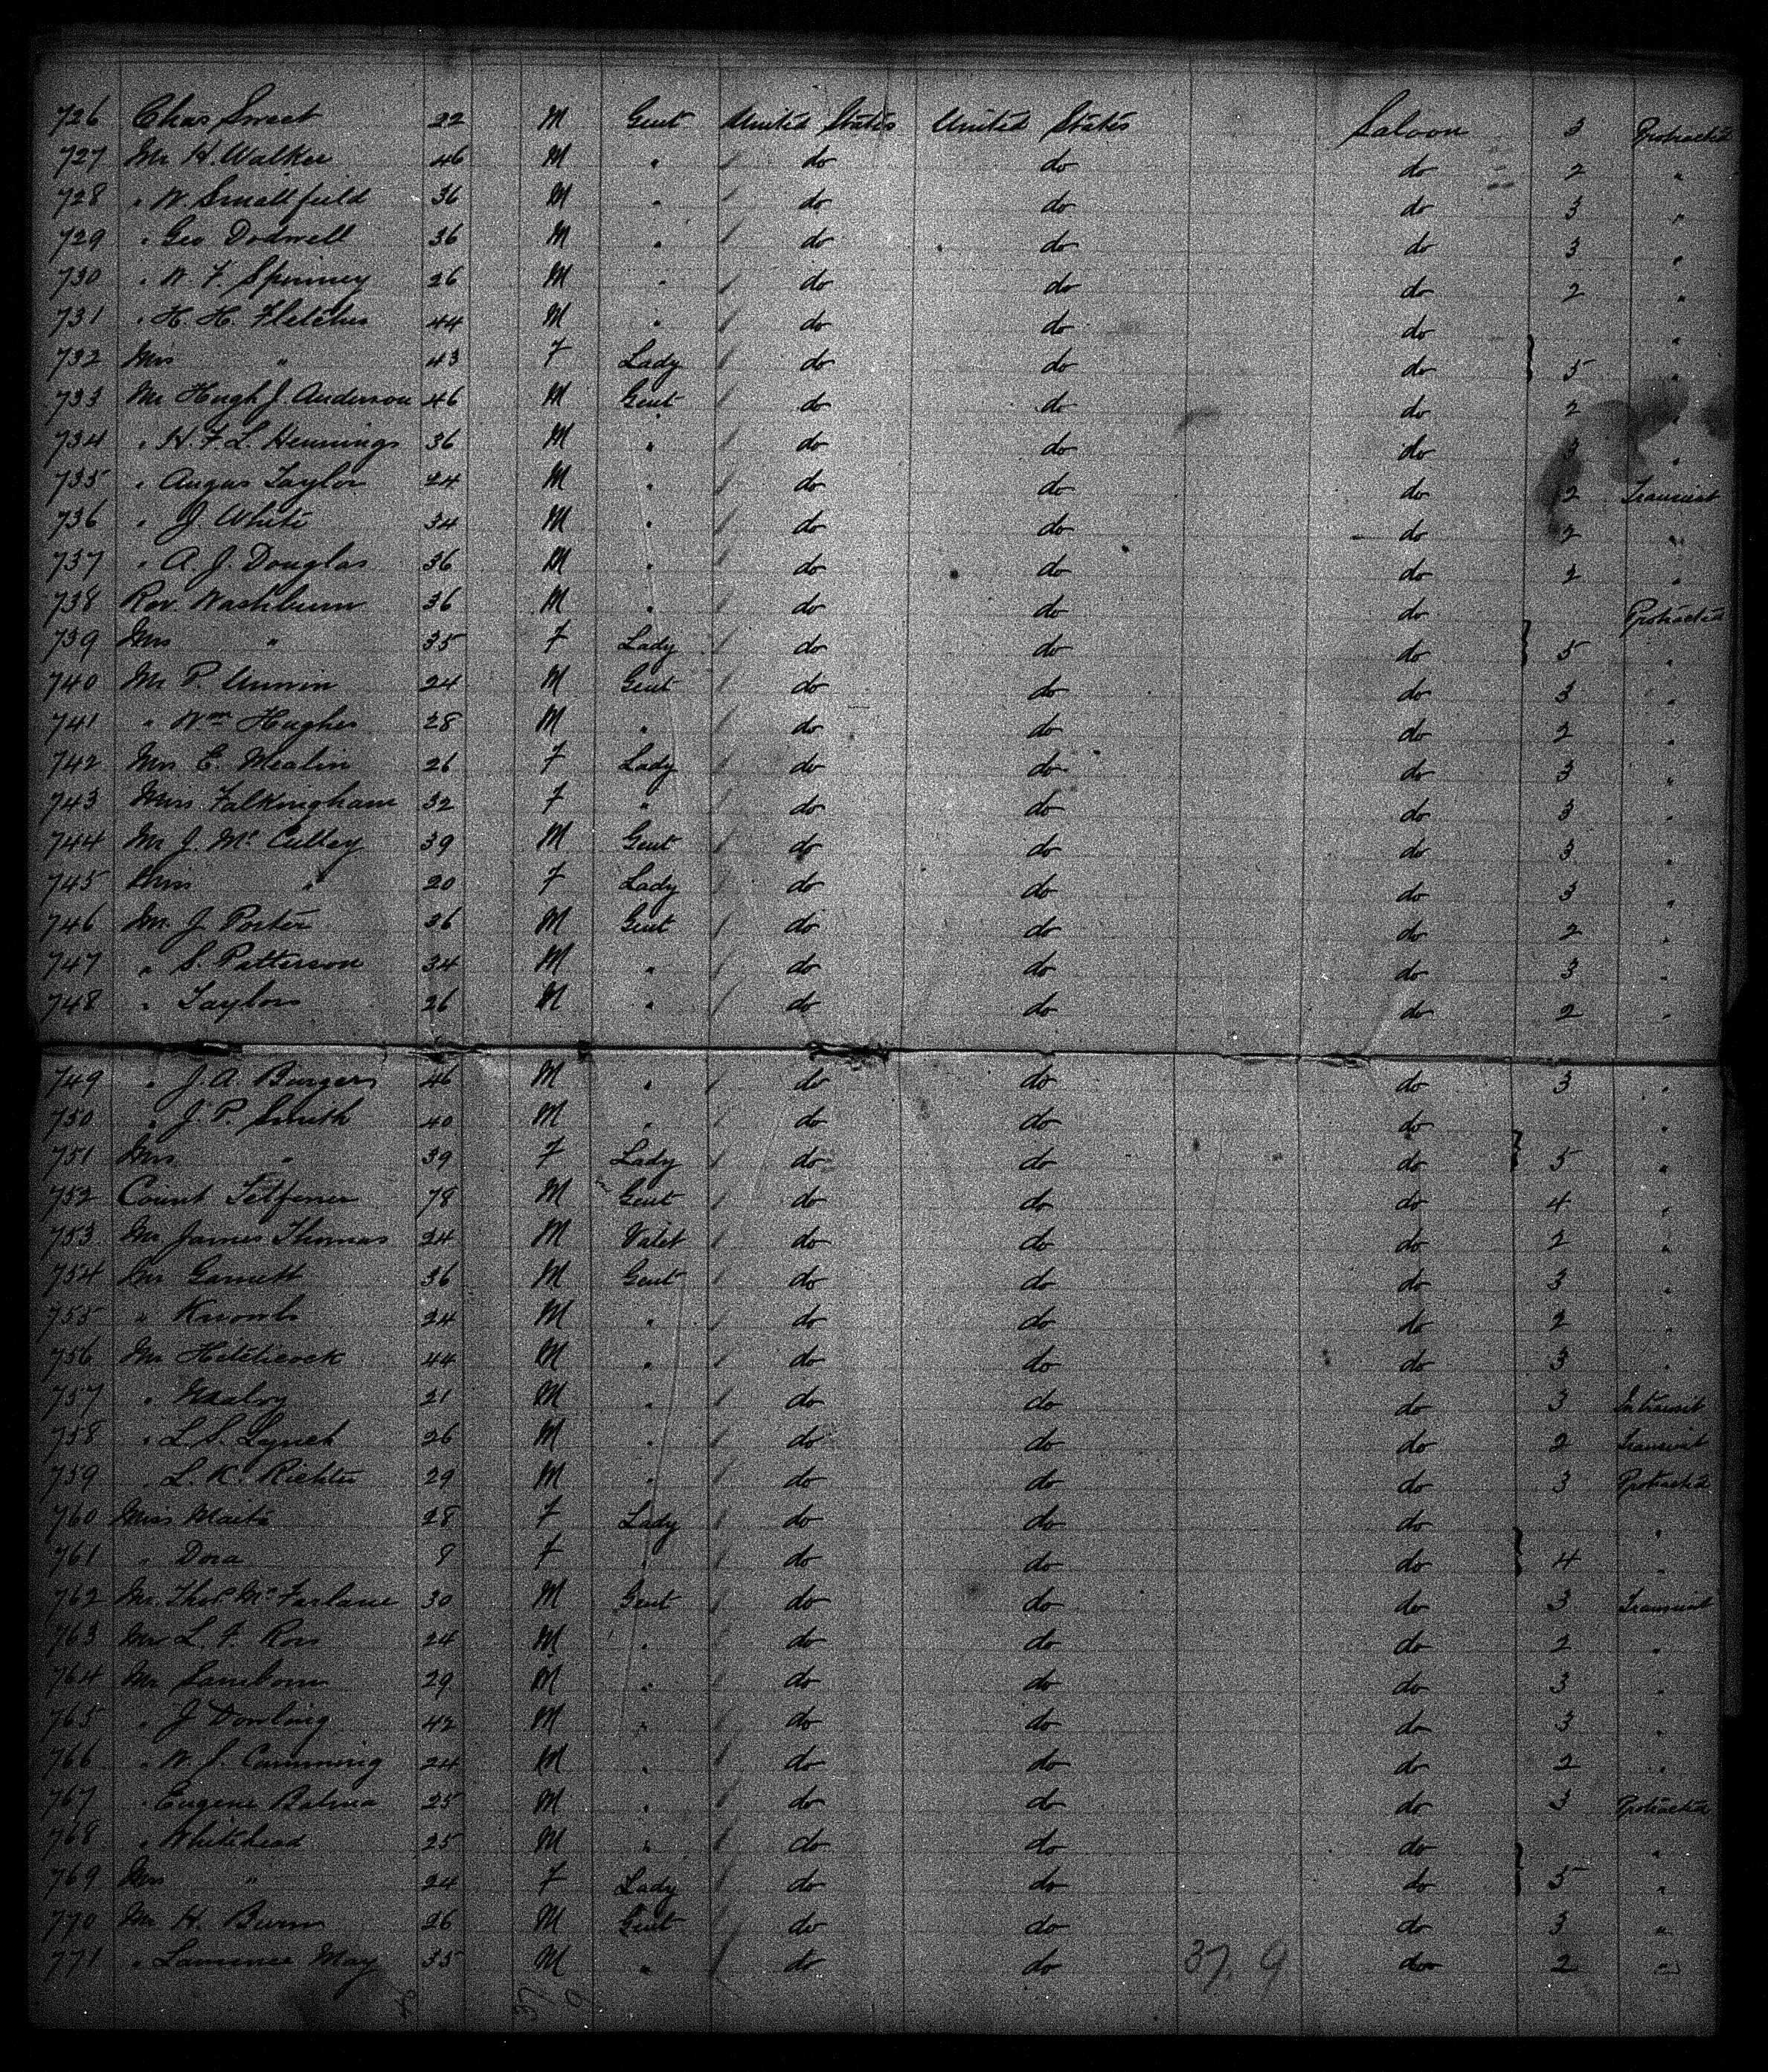 726 Chas Sweet 22 M Gent United States United States Saloon 3 Protracted
727 Mr H. Walker 46 M " do do do 2 "
728 " W Smallfield 36 M " do do do 3 "
729 " Geo Dodwell 36 M " do do do 3 "
730 " W. F. Spinney 26 M " do do do 2 "
731 " H. H. Fletcher 44 M " do do do "
732 Mrs " 43 F Lady do do do 5 "
733 Mr Hugh J. Anderson 46 M Gent do do do 2 "
734 " H. F. L. Hennings 36 M " do do do 3 "
735 " Angus Taylor 24 M " do do do 2 Transient
736 " J. White 34 M " do do do 2 "
737 " A. J. Douglas 36 M " do do do 2 "
738 Rev Washburn 36 M " do do do Protracted
739 Mrs " 35 F Lady do do do 5 "
740 Mr P. Unwin 24 M Gent do do do 3 "
741 " Wm Hughes 28 M " do do do 2 "
742 Mrs E. Mealin 26 F Lady do do do 3 "
743 Miss Falkingham 32 F " do do do 3 "
744 Mr J. Mc Culley 39 M Gent do do do 3 "
745 Miss " 20 F Lady do do do 3 "
746 Mr J Porter 36 M Gent do do do 2 "
747 " S. Patterson 34 M " do do do 3 "
748 " Taylor 26 M " do do do 2 "
749 " J. A. Burgers 46 M " do do do 3 "
750 " J. P. Smith 40 M " do do do "
751 Mrs " 39 F Lady do do do 5 "
752 Count Telfener 78 M Gent do do do 4 "
753 Mr James Thomas 24 M Valet do do do 2 "
754 Mr Garnett 36 M Gent do do do 3 "
755 " 24 M " do do do 2 "
756 Mr Hitchcock 44 M " do do do 3 "
757 " 21 M " do do do 3 Intransit
758 " L. S. Lynch 26 M " do do do 2 Transient
759 " L. K. Richter 29 M " do do do 3 Protracted
760 Miss 28 F Lady do do do "
761 " Dora 9 F " do do do 4 "
762 Mr. Thos Mc Farlane 30 M Gent do do do 3 Transient
763 Mr L. F. Ross 24 M " do do do 2 "
764 Mr Sanborn 29 M " do do do 3 "
765 " J Dowling 42 M " do do do 3 "
766 " W. J. Cumming 24 M " do do do 2 "
767 " Eugene 25 M " do do do 3 Protracted
768 " Whitehead 25 M " do do do "
769 Mrs " 24 F Lady do do do 5 "
770 Mr H. Burn 26 M Gent do do do 3 "
771 " Lawrence May 35 M " do do 37. 9 do 2 "
37